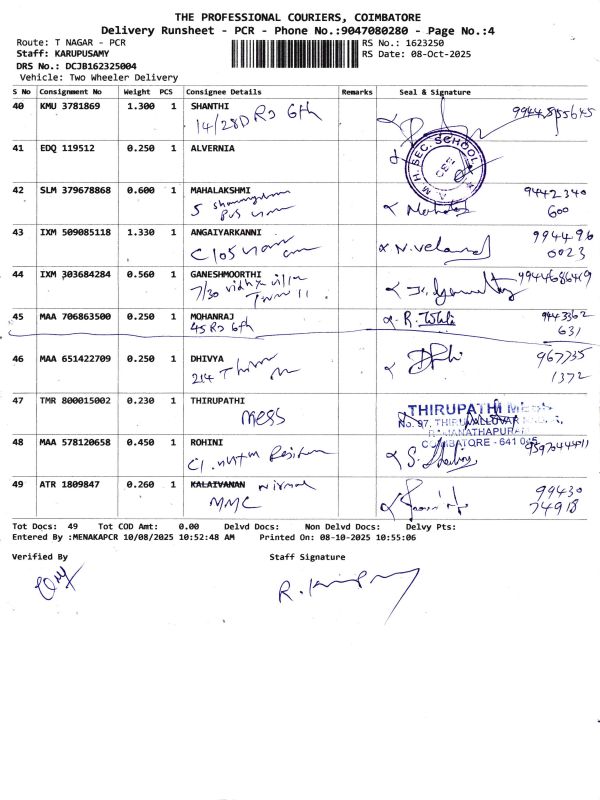 THE PROFESSIONAL COURIERS, COIMBATORE
Delivery Runsheet - PCR - Phone No.:9047080280 - Page No.:4
Route: T NAGAR - PCR
RS No.: 1623250
Staff: KARUPUSAMY
RS Date: 08-Oct-2025
DRS No.: DCJB162325004
Vehicle: Two Wheeler Delivery
S No Consignment No Weight PCS Consignee Details Remarks Seal & Signature
40 KMU 3781869 1.300 1 SHANTHI
14/28D Rs 6th
41 EDQ 119512 0.250 1 ALVERNIA
A. M. H. SEC. SCHOOL
42 SLM 379678868 0.600 1 MAHALAKSHMI 9442340
5 600
43 IXM 509085118 1.330 1 ANGAIYARKANNI 994496
C105 N. 0023
44 IXM 303684284 0.560 1 GANESHMOORTHI
7/30 vidhya villa 9944686419
45 MAA 706863500 0.250 1 MOHANRAJ R. 9443362
45 Rs 6th 631
46 MAA 651422709 0.250 1 DHIVYA 967735
214 1372
47 TMR 800015002 0.230 1 THIRUPATHI
mess
THIRUPATHI
No. 97, THIRUVALLUVAR
RAMANATHAPURAM
COIMBATORE - 641 045
48 MAA 578120658 0.450 1 ROHINI
S.
49 ATR 1809847 0.260 1 KALAIVANAN Nirmal 99430
MMC 74918
Tot Docs: 49 Tot COD Amt: 0.00 Delvd Docs: Non Delvd Docs: Delvy Pts:
Entered By :MENAKAPCR 10/08/2025 10:52:48 AM Printed On: 08-10-2025 10:55:06
Verified By Staff Signature